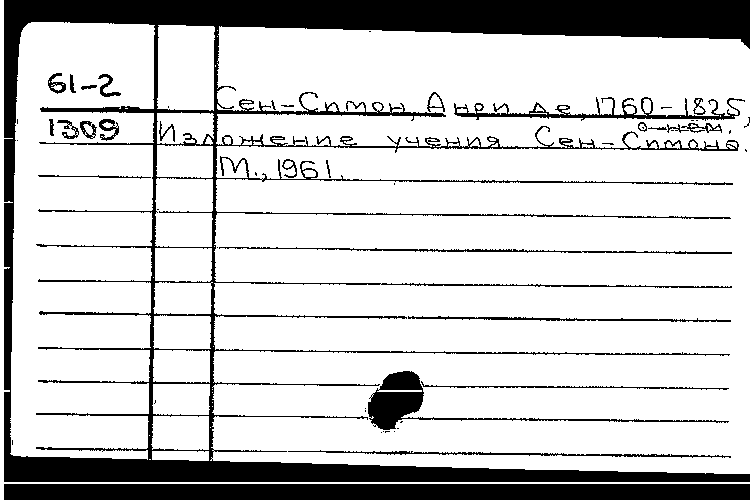 61-2
Сен-Симон, Анри де, 1760-1825,
о нем.
1309 Изложение учения Сен-Симона.
М., 1961.